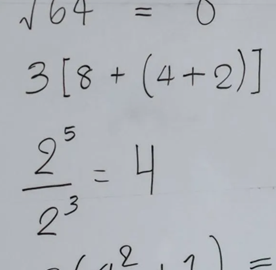 √64 = 8
3[8 + (4+2)]
2^5/2^3 = 4